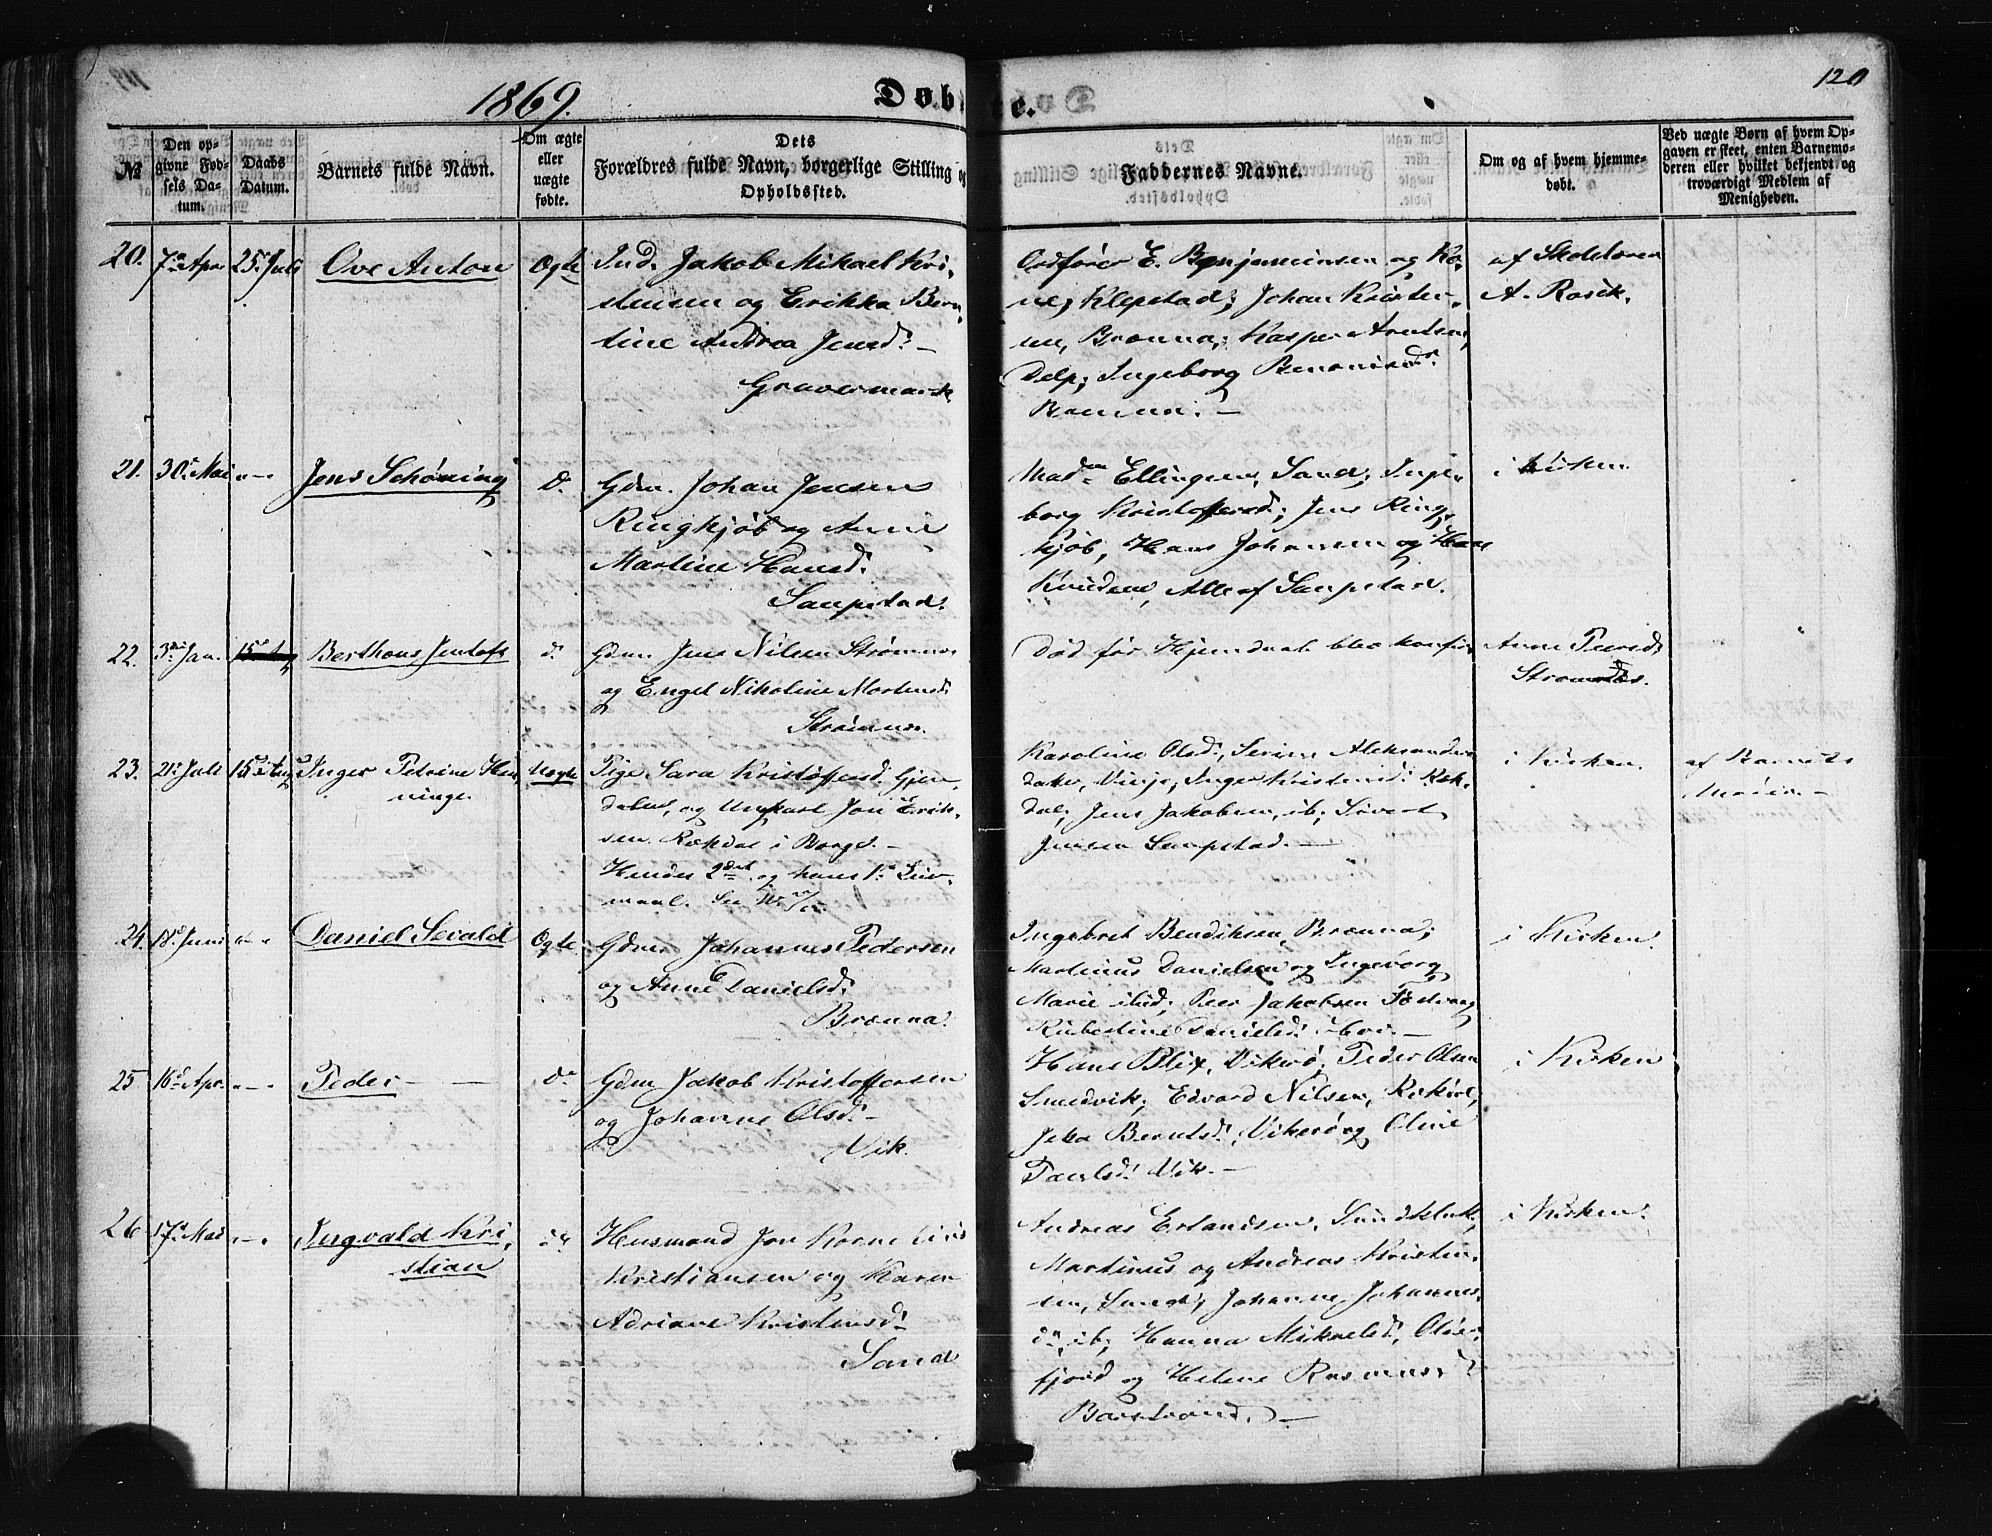 1869.
Døb
re.
120
No
Den opgivne Fødsels Datum.
Daabs Datum.
Barnets fulde Navn.
Om ægte eller uægte fødte.
Dets Forældres fulde Navn, borgerlige Stilling og Opholdssted.
Faddernes Navne.
Om og af hvem hjemmedøbt.
Ved uægte Børn af hvem Opgaven er skeet, enten Barnemoderen eller hvilket bekjendt og troværdigt Medlem af Menigheden.
20. 7de Apr 25de Juli Ove Anton Ægte
Ind. Jakob Mikael Kri-
stensen og Erikka Bern-
tine Andrea Jensd. -
Gravermark
Ordfører E. Benjaminsen og Ko-
ne, Klepstad; Johan Kristen-
sen, Brænna; Kasper Arntsen,
Delp; Ingeborg
Brænna. -
af Skolelærer
A. Rasik.
21. 30te Mai " - " Jens Schøning do
Gdm. Johan Jensen
Ringkjøb og Anne
Martine Hansd.
Saupstad.
Madm Ellingsen, Sand; Inge-
borg Kristoffersd; Jens Ring-
kjøb, Hans Johansen og Hans
Knudsen, Alle af Saupstad.
i Kirken.
22. 3die Jan. Bertheus Jentoft d.
Gdm. Jens Nilsen Strømnes
og Engel Nikoline Martensd.
Strømnes.
Død før Hjemdaab blev konfir.
Anne
Strømnæs.
23. 21de Juli 15de Aug Inger Petrine Hen-
ninge Uægte
Pige Sara Kristoffersd. Gjer-
dalen, og Ungkarl Jon Erik-
sen Rekdal i Borge. -
Hendes 2det og hans 1ste Leier-
maal. See No
Karoline Olsd; Serine Aleksanders-
datter, Vinje; Inger Kristensd. Rek-
dal; Jens Jakobsen, ib; Sivert
Jensen Saupstad. -
i Kirken.
af Barnets
Moder -
24. 18de Juni " - " Daniel Sevald Ægte
Gdm. Johannes Pedersen
og Anne Danielsd.
Brænna.
Ingebret Bendiksen, Brænna;
Martinus Danielsen og Ingeborg
Marie ibid; Peer Jakobsen
Danielsd. -
i Kirken.
25 16de Apr. " - " Peder - - do
Gdm Jakob Kristoffersen
og Johanne Olsd. -
Vik.
Hans Blix, Vikerø; Peder Olsen
Smedvik; Edvard Nilsen,
Berntsd. Vikerø og Oline
Paulsd. Vik. -
i Kirken
26 17de Mai " - " Ingvald Kri-
stian do
Husmand Jon Kornelius
Kristiansen og Karen
Adriane Kristensd.
Sand
Andreas Erlandsen, Sundklak;
Martinus og Andreas Kristen-
sen, Sund; Johanne Johannes-
dr, ib; Hanna Mikaelsd, Older-
fjord og Helene Rasmusd.
Barstrand. -
i Kirken.